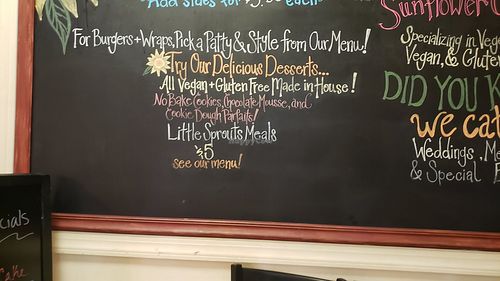 Add sides for $3.50 each
For Burgers + Wraps, Pick a Patty & Style from Our Menu!
Try Our Delicious Desserts...
All Vegan + Gluten Free Made in House!
No Bake Cookies, Chocolate Mousse, and
Cookie Dough Parfaits!
Little Sprouts Meals
$5
see our menu!
Sunflower
Specializing in Vege
Vegan, & Gluten
DID YOU K
we cat
Weddings, Me
& Special E
cials
Cake
HappyCow